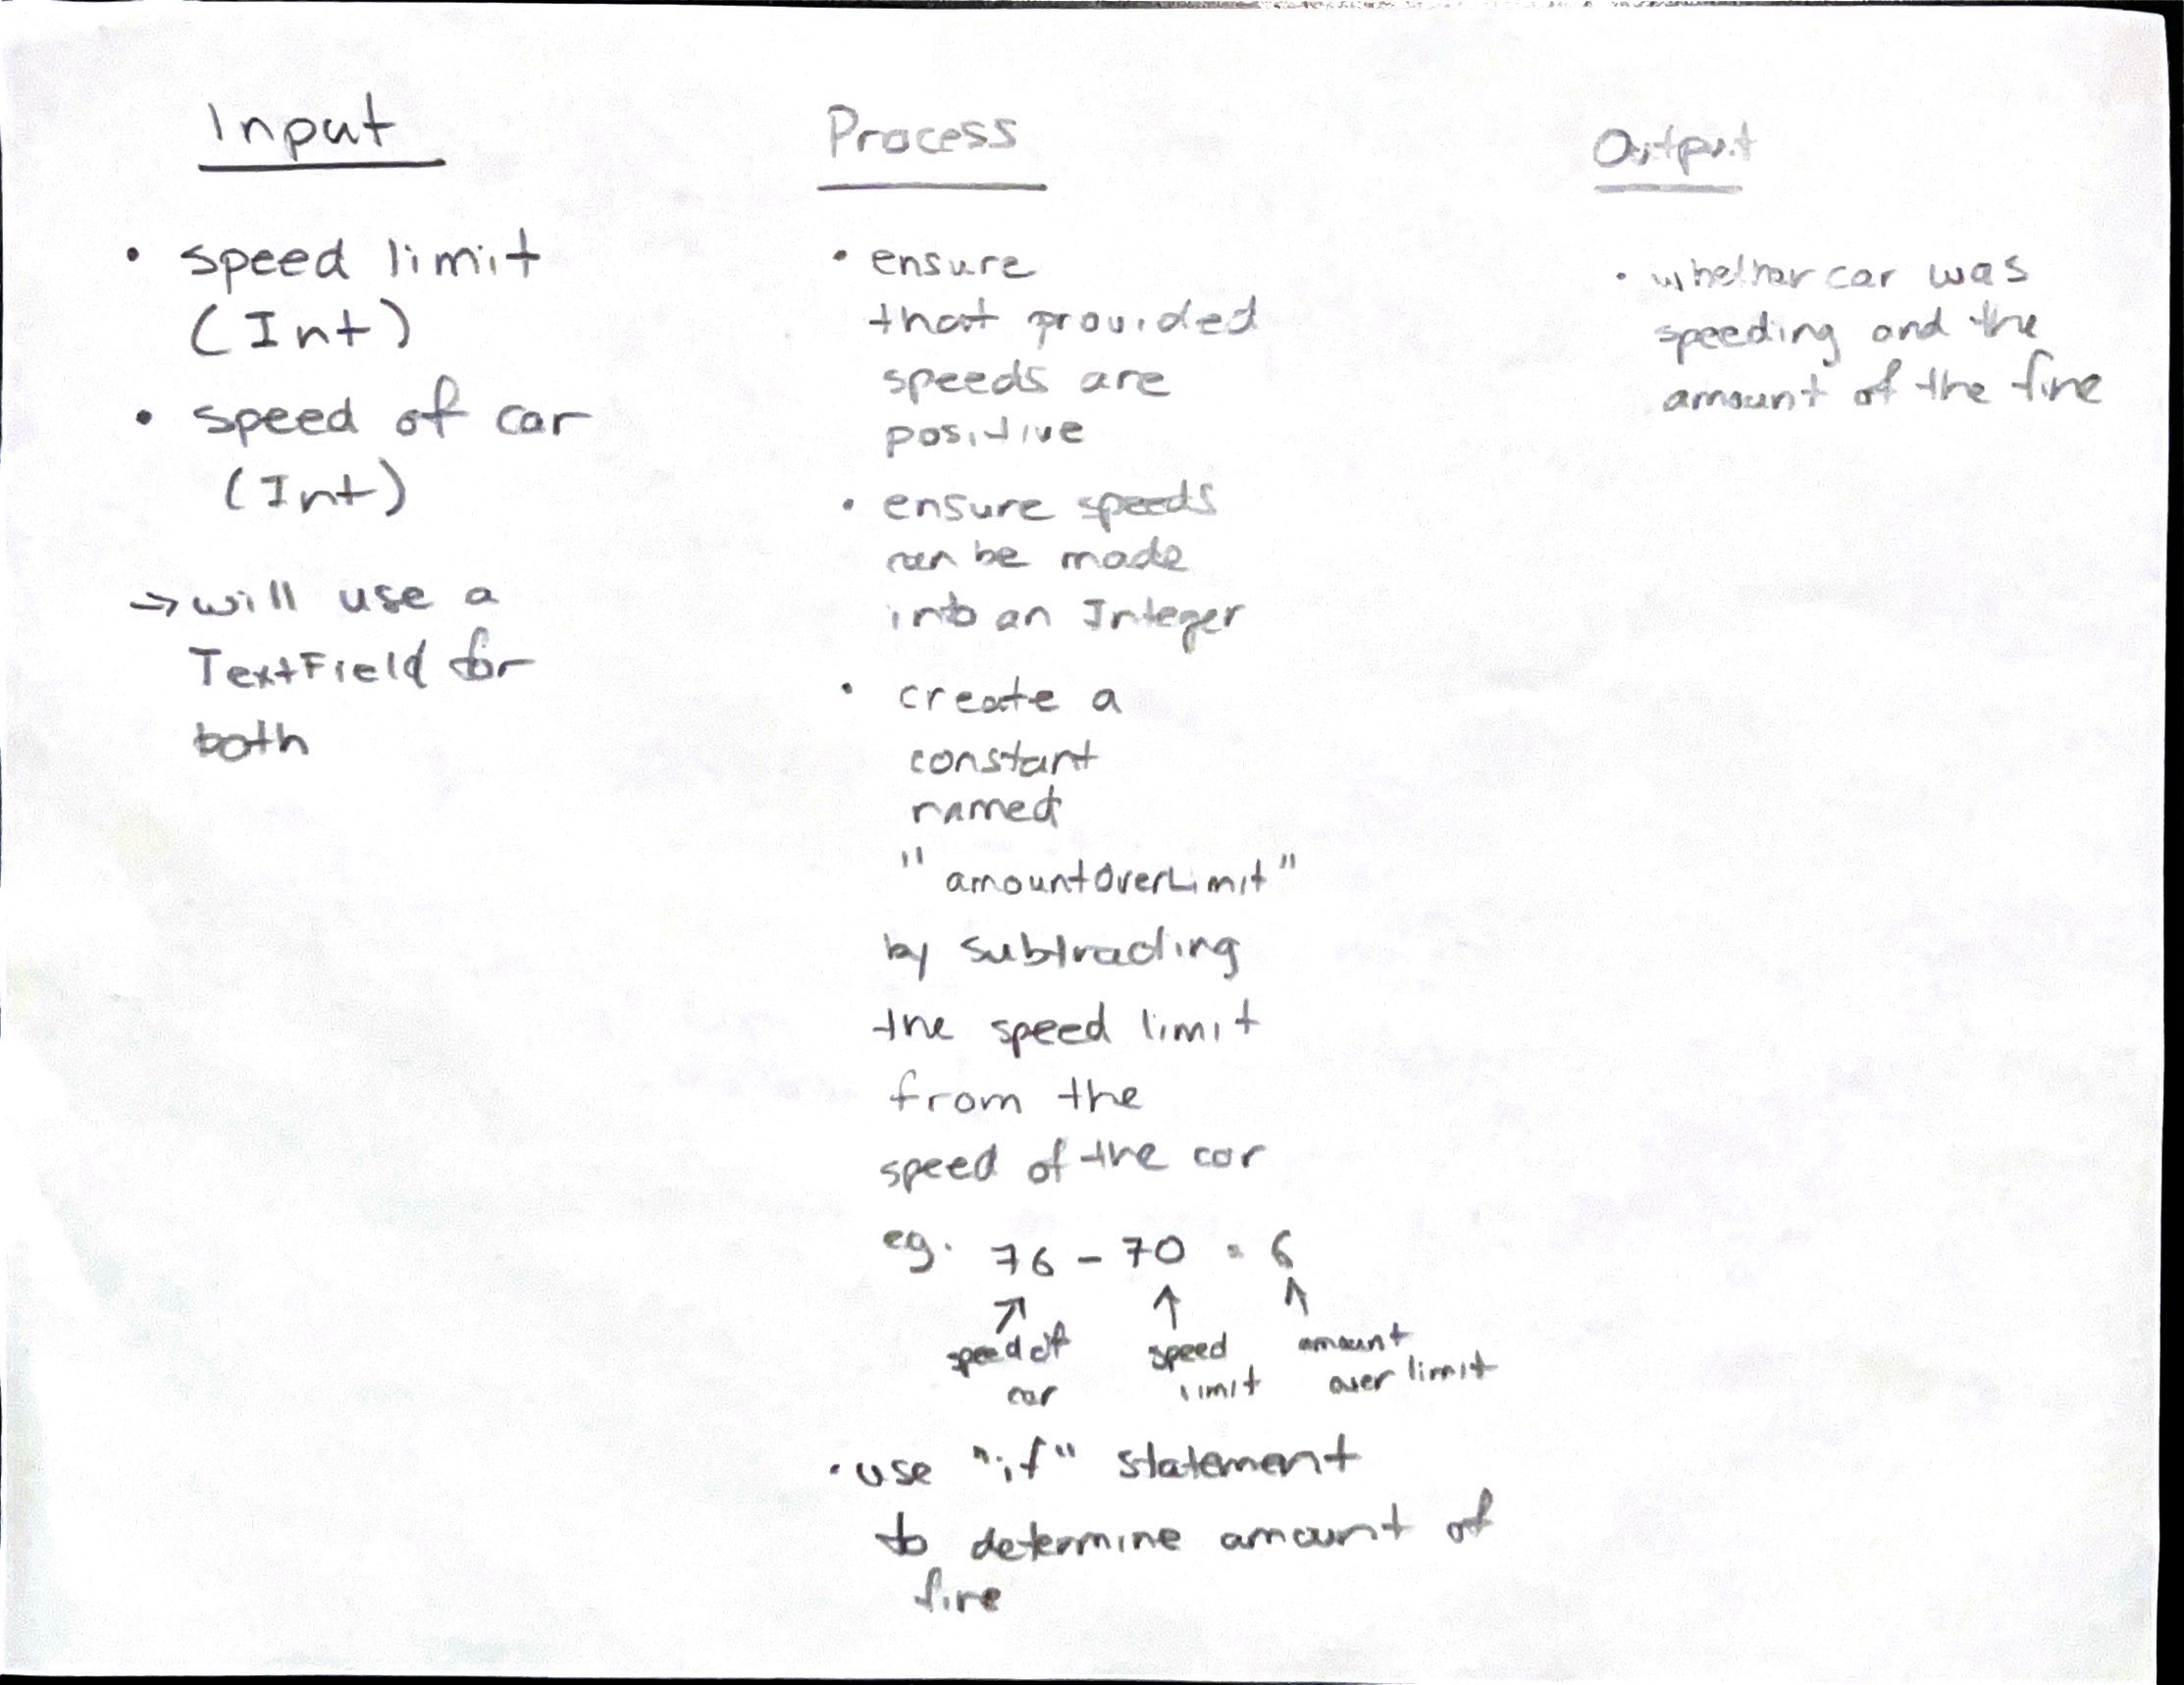 Input
• speed limit
(Int)
• speed of car
(Int)
→ will use a
TextField for
both
Process
• ensure
that provided
speeds are
positive
• ensure speeds
can be made
into an Integer
• create a
constant
named
"amountOverLimit"
by subtracting
the speed limit
from the
speed of the car
eg. 76 - 70 = 6
↗ ↑ ↑
speed of car
speed limit
amount over limit
• use "if" statement
to determine amount of
fine
Output
• whether car was
speeding and the
amount of the fine